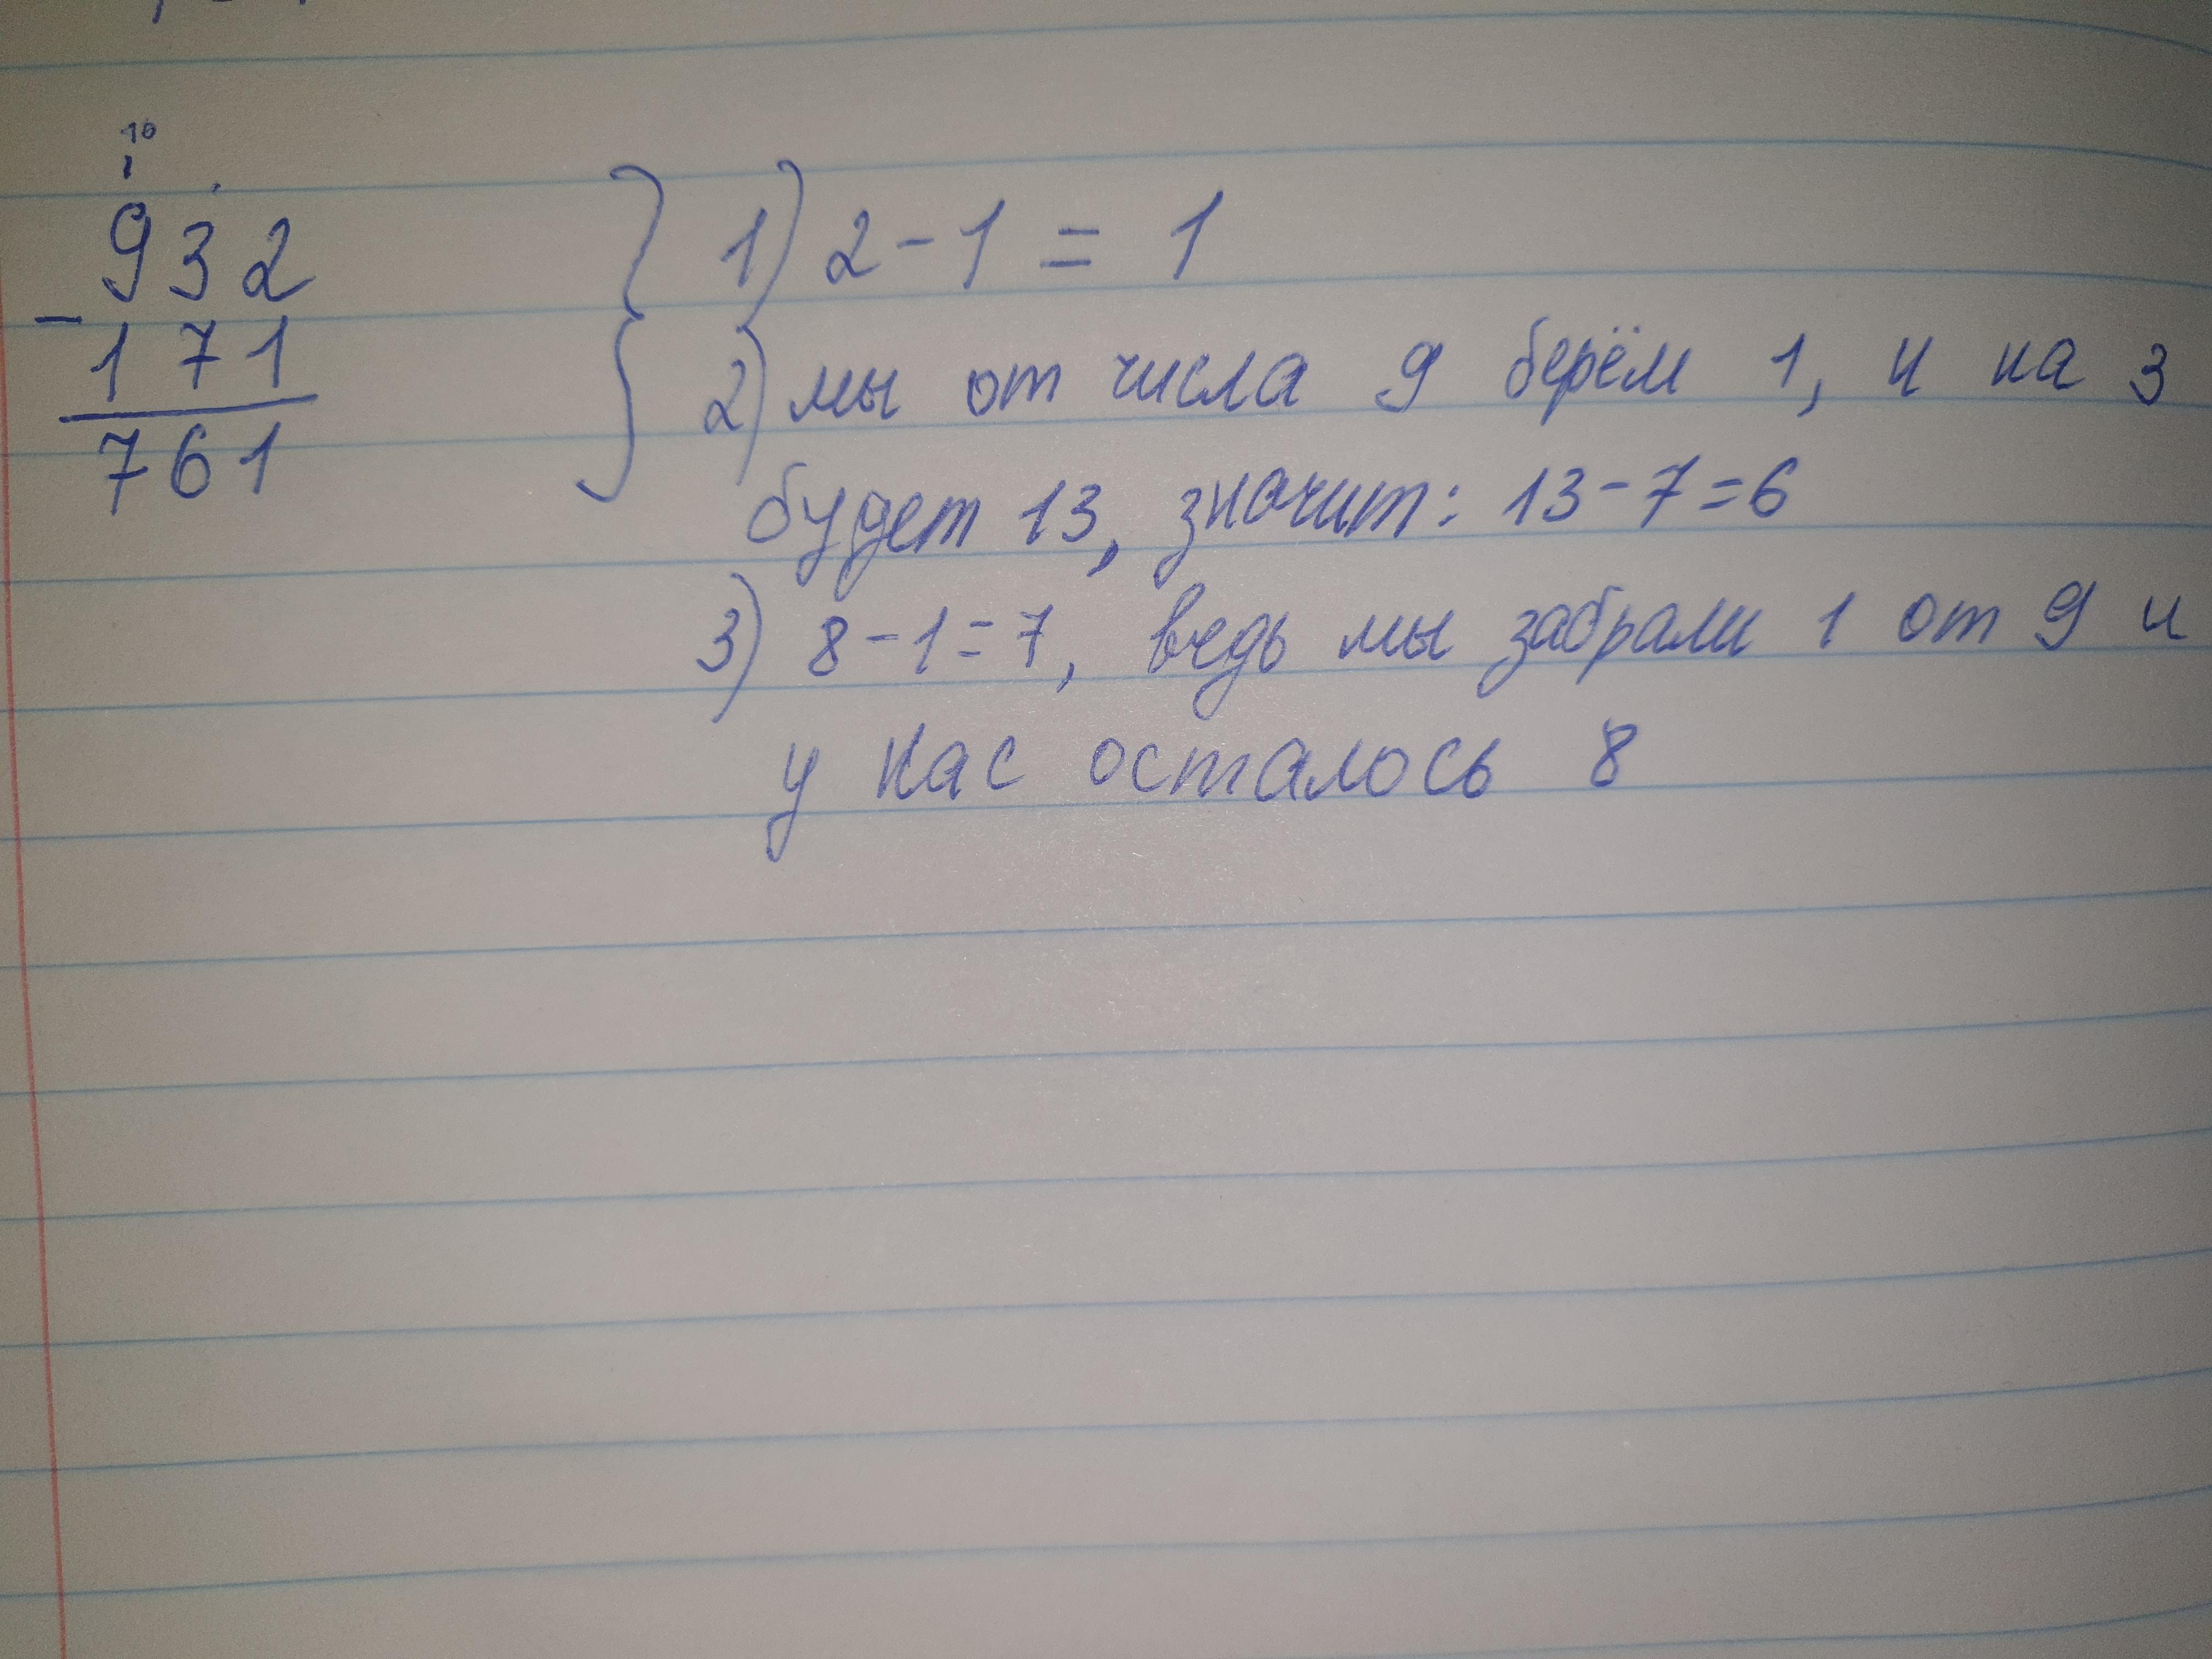 10
932
-
171
761
1) 2-1 = 1
2) мы от числа 9 берём 1, и на 3
будет 13, значит: 13-7=6
3) 8-1=7, ведь мы забрали 1 от 9 и
у нас осталось 8